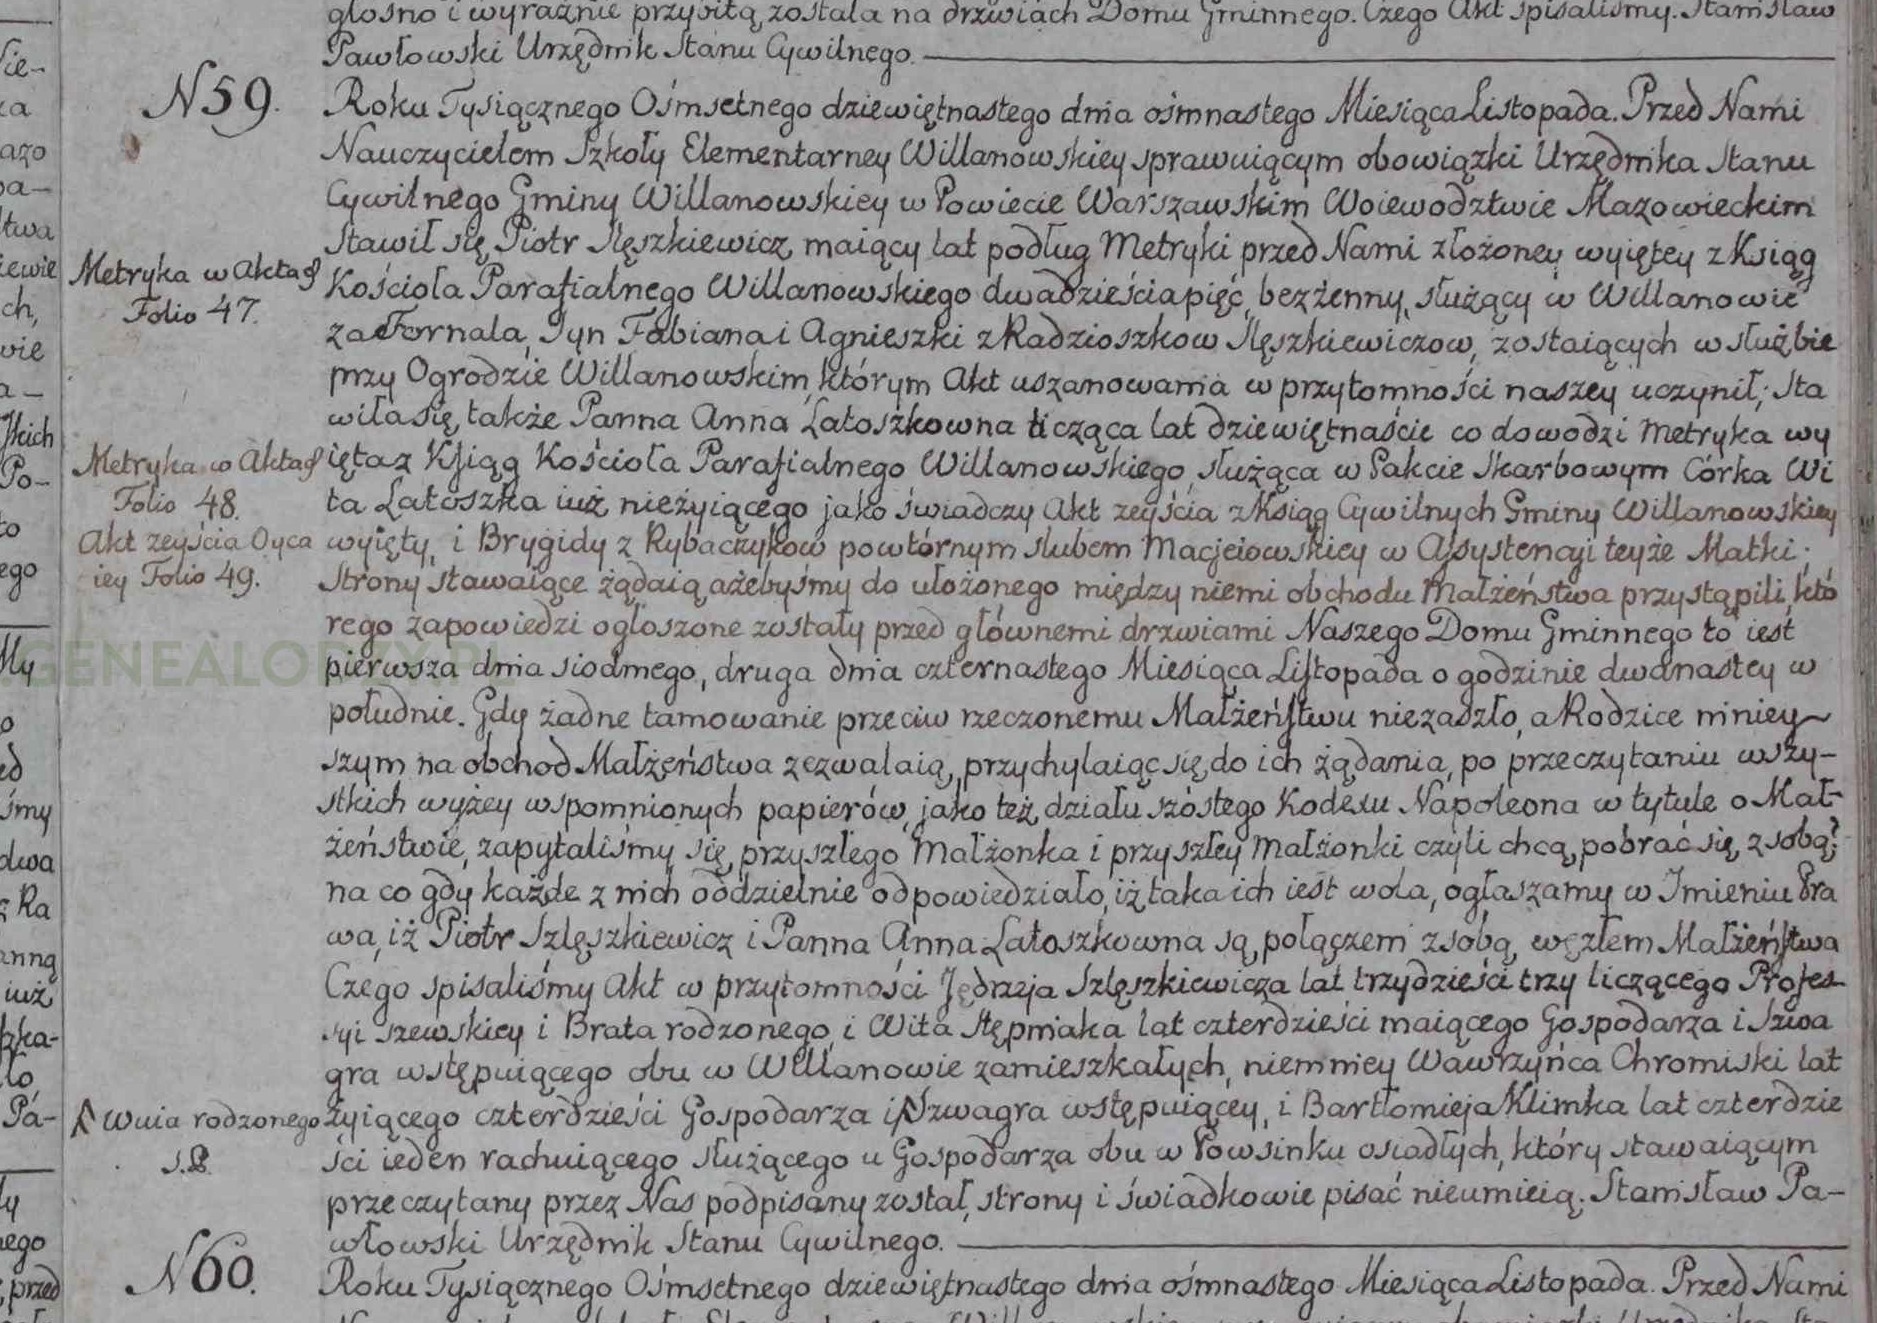 głosno i wyraźnie przybitą została na drzwiach Domu Gminnego. Czego Akt spisaliśmy. Stanisław
Pawłowski Urzędnik Stanu Cywilnego.
N 59.
Roku Tysiącznego Ośmsetnego dziewiętnastego dnia ośmnastego Miesiąca Listopada. Przed Nami
Nauczycielem Szkoły Elementarney Willanowskiey sprawuiącym obowiązki Urzędnika Stanu
Cywilnego Gminy Willanowskiey w Powiecie Warszawskim Woiewodztwie Mazowieckim
Stawił się Piotr Slęszkiewicz maiący lat podług Metryki przed Nami złożoney wyiętey z Ksiąg
Metryka w Aktach
Folio 47.
Kościoła Parafialnego Willanowskiego dwadzieścia pięć, bezżenny, służący w Willanowie
za Fornala, Syn Fabiana i Agnieszki z Radzioszkow Slęszkiewiczow, zostaiących w służbie
przy Ogrodzie Willanowskim, którym Akt uszanowania w przytomności naszey uczynił; Sta
wiła się także Panna Anna Łatoszkowna licząca lat dziewiętnaście co dowodzi Metryka wy
Metryka w Aktach
Folio 48.
Akt zeyścia Oyca
iey Folio 49.
ięta z Ksiąg Kościoła Parafialnego Willanowskiego, służąca w Pakcie Skarbowym Córka Wi
ta Łatoszka iuż nieżyiącego jako świadczy Akt zeyścia z Ksiąg Cywilnych Gminy Willanowskiey
wyięty, i Brygidy z Rybaczykow powtórnym slubem Macjeiowskiey w Assystencyi teyże Matki;
Strony stawaiące żądaią ażebyśmy do ułożonego między niemi obchodu Małżeństwa przystąpili, któ
rego zapowiedzi ogłoszone zostały przed głównemi drzwiami Naszego Domu Gminnego to iest
pierwsza dnia siodmego, druga dnia czternastego Miesiąca Listopada o godzinie dwanastey w
południe. Gdy żadne tamowanie przeciw rzeczonemu Małżeństwu niezaszło, a Rodzice niniey
szym na obchod Małżeństwa zezwalaią, przychylaiąc się do ich żądania, po przeczytaniu wszy-
stkich wyżey wspomnionych papierów, jako też działu szóstego Kodexu Napoleona w tytule o Mał-
żeństwie, zapytaliśmy się przyszłego Małżonka i przyszłey Małżonki czyli chcą pobrać się z sobą?
na co gdy każde z nich oddzielnie odpowiedziało, iż taka ich iest wola, ogłaszamy w Imieniu Pra
wa, iż Piotr Szlęszkiewicz i Panna Anna Łatoszkowna są połączeni z sobą węzłem Małżeństwa
Czego spisaliśmy Akt w przytomności Jędrzeja Szlęszkiewicza lat trzydzieści trzy liczącego Profes-
syi szewskiey i Brata rodzonego, i Wita Stępniaka lat czterdzieści maiącego Gospodarza i Szwa
gra wstępuiącego obu w Willanowie zamieszkałych, niemniey Wawrzyńca Chromiski lat
żyiącego czterdzieści Gospodarza i Szwagra wstępuiącey, i Bartłomieja Klimka lat czterdzie
Wuia rodzonego
S.P.
ści ieden rachuiącego służącego u Gospodarza obu w Powsinku osiadłych, który stawaiącym
przeczytany przez Nas podpisany został, strony i świadkowie pisać nieumieią. Stanisław Pa-
włowski Urzędnik Stanu Cywilnego.
N 60.
Roku Tysiącznego Ośmsetnego dziewiętnastego dnia ośmnastego Miesiąca Listopada. Przed Nami